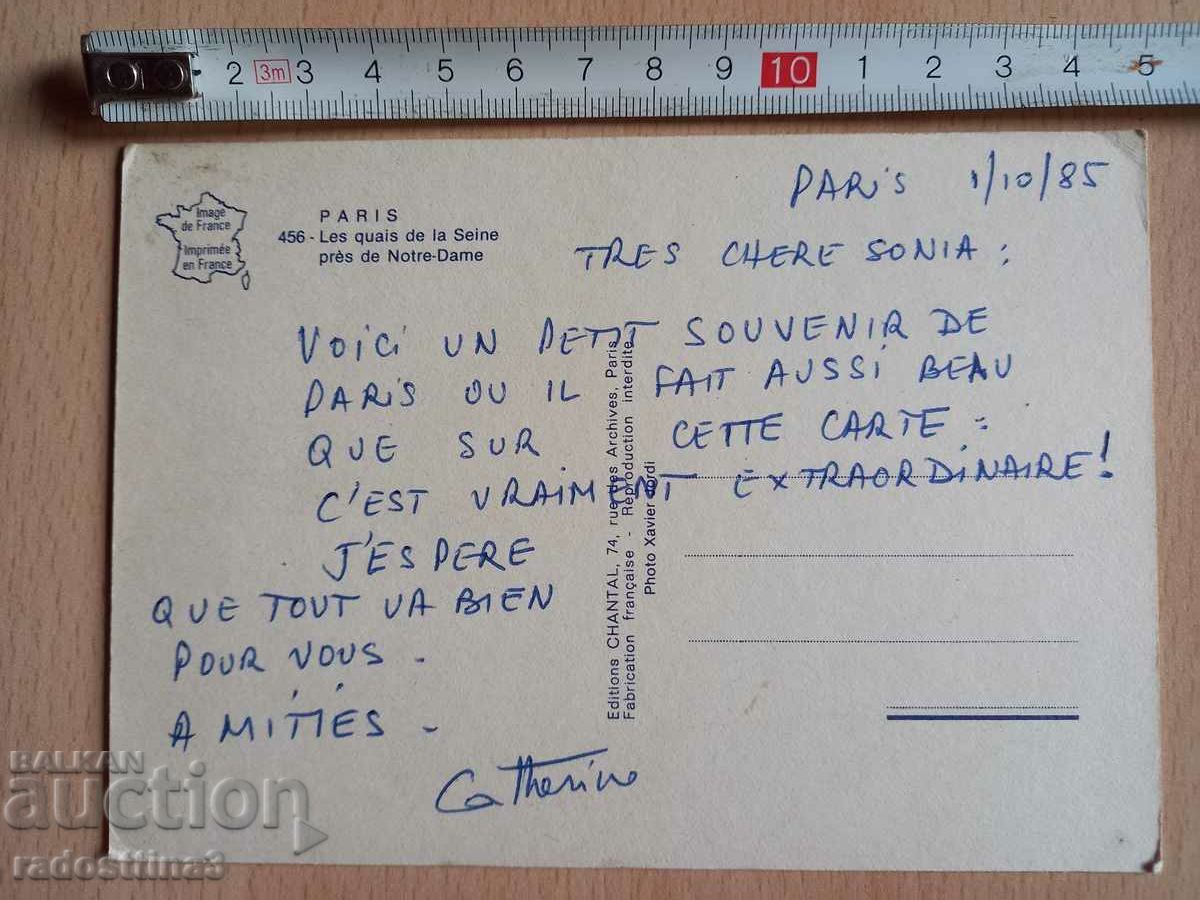 2 3m 3 4 5 6 7 8 9 10 1 2 3 4 5
Image
de France
Imprimée
en France
PARIS
456 - Les quais de la Seine
près de Notre-Dame
PARIS 1/10/85
TRES CHERE SONIA :
VOICI UN PETIT SOUVENIR DE
PARIS OU IL FAIT AUSSI BEAU
QUE SUR CETTE CARTE :
C'EST VRAIMENT EXTRAORDINAIRE !
J'ESPERE
QUE TOUT VA BIEN
POUR VOUS -
AMITIÉS -
Catherine
Editions CHANTAL, 74, rue des Archives, Paris
Fabrication française - Reproduction interdite
Photo Xavier
BALKAN
auction
radosttina3